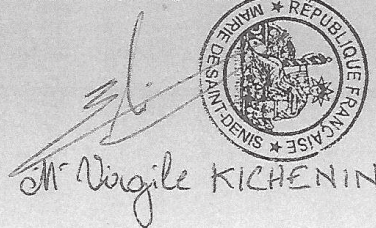 MAIRIE DE SAINT-DENIS ★ RÉPUBLIQUE FRANÇAISE ★
Mr Virgile KICHENIN